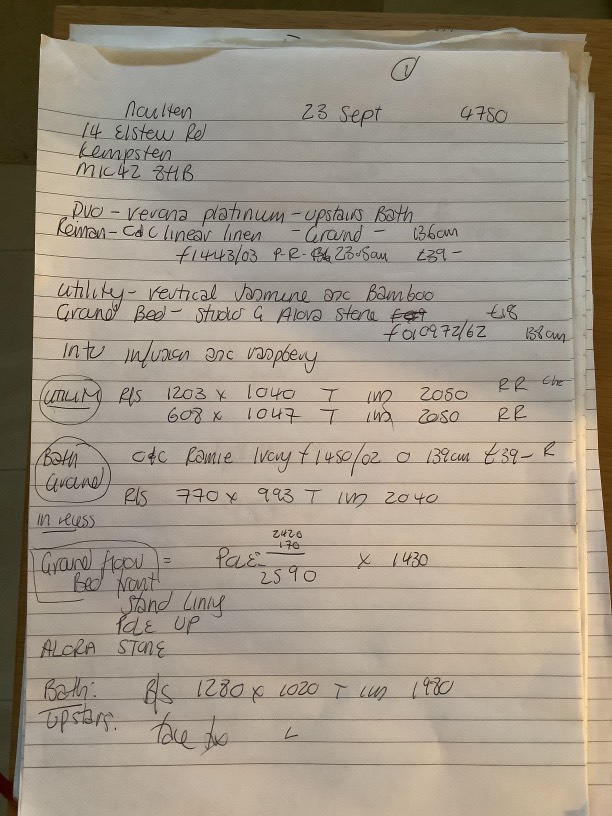 1
23 Sept 4750
14 Elstow Rd
Kempston
MK42 8HB
Duo - verona platinum - upstairs Bath
- C&C linear linen - Ground - 136cm
f1443/03 P-R- 23.5cm £39-
Utility - vertical Jasmine Bamboo
Ground Bed - Studio G Alora Stone £18
f01097 2/62 138cm
Into infusion raspberry
R/S 1203 x 1040 T 2050 RR
608 x 1047 T 2050 RR
Bath Ground C&C Ramie Ivory f1450/02 O 139cm £39- R
R/S 770 x 993 T 2040
in recess
2420
170
Ground floor = Pole 2590 x 1430
Bed front
Stand Lining
Pole UP
ALORA STONE
Bath: R/S 1280 x 1020 T 1980
Upstairs. face L